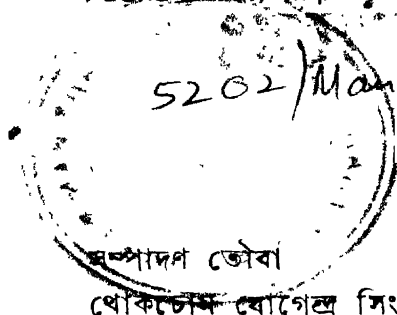 5202/Man
সম্পাদন তৌবা
থোকচোম যোগেন্দ্র সিং